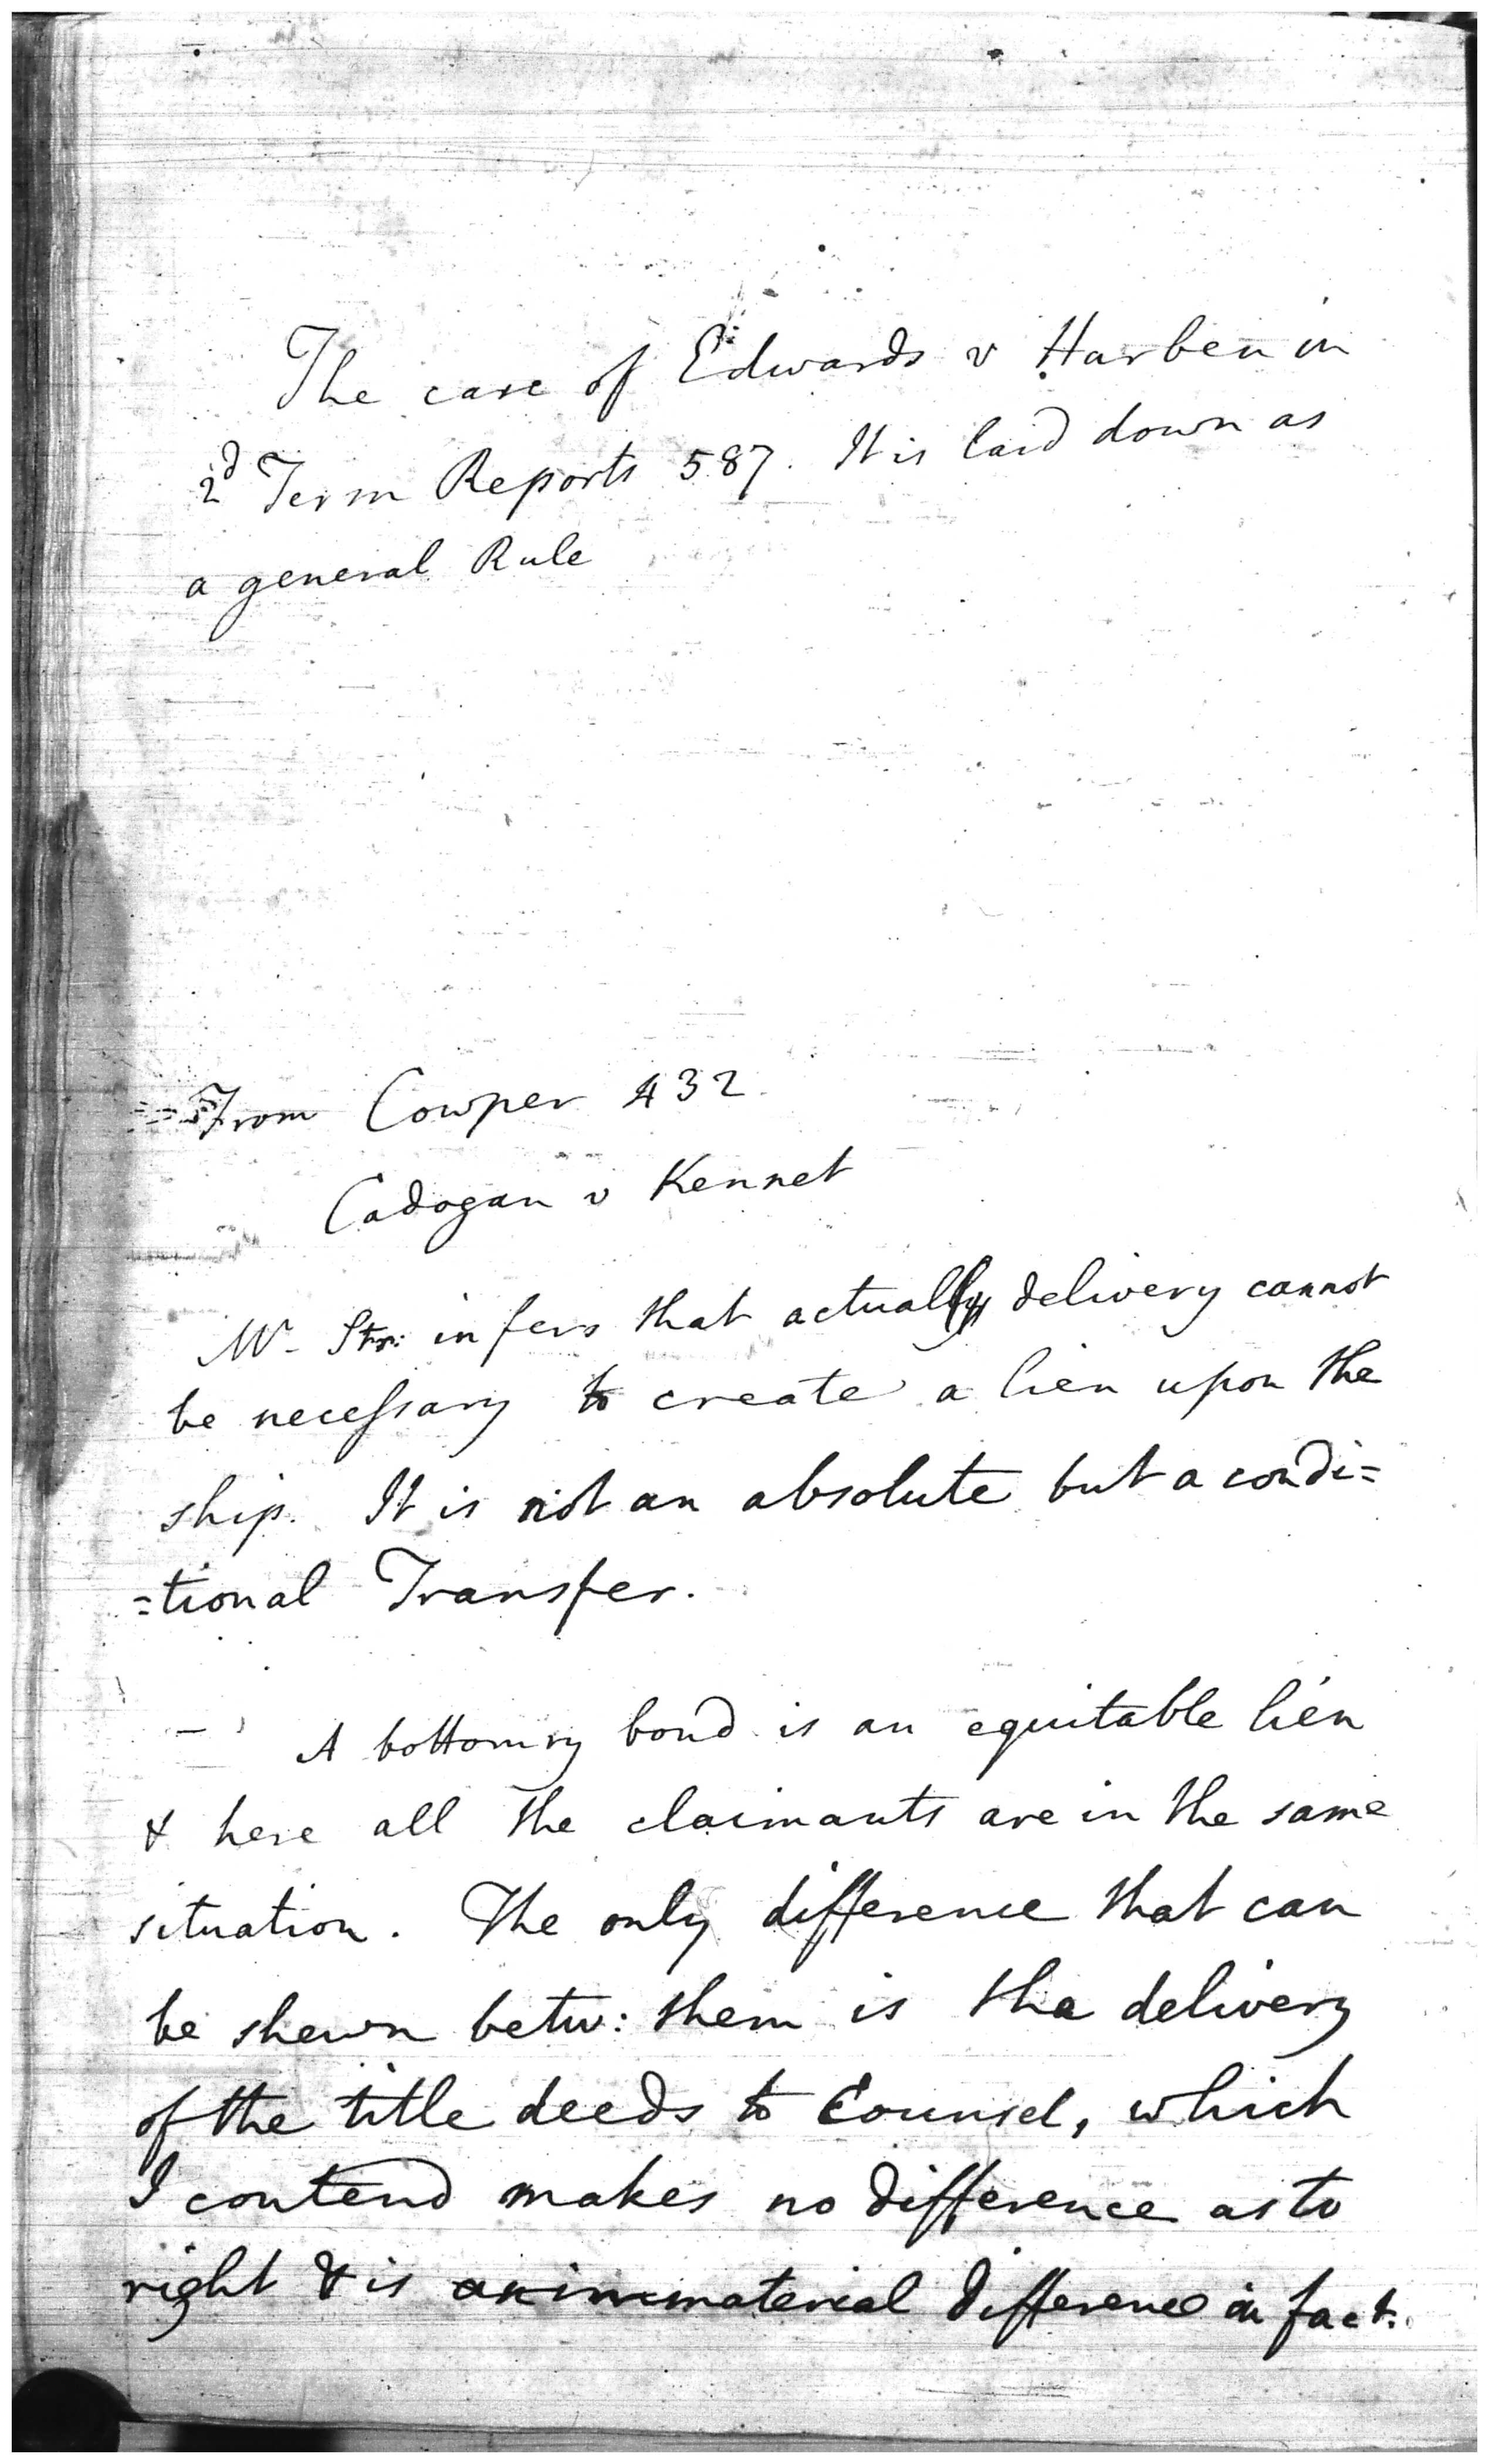 The case of Edwards v Harben in
2d Term Reports 587. It is laid down as
a general Rule
From Cowper 432
Cadogan v Kennet
Mr. Str: infers that actual delivery cannot
be necessary to create a lien upon the
ship. It is not an absolute but a condi=
=tional Transfer.
A bottomry bond is an equitable lien
& here all the claimants are in the same
situation. The only difference that can
be shewn betw: them is the delivery
of the title deeds to Counsel, which
I contend makes no difference as to
right & is an immaterial difference in fact.